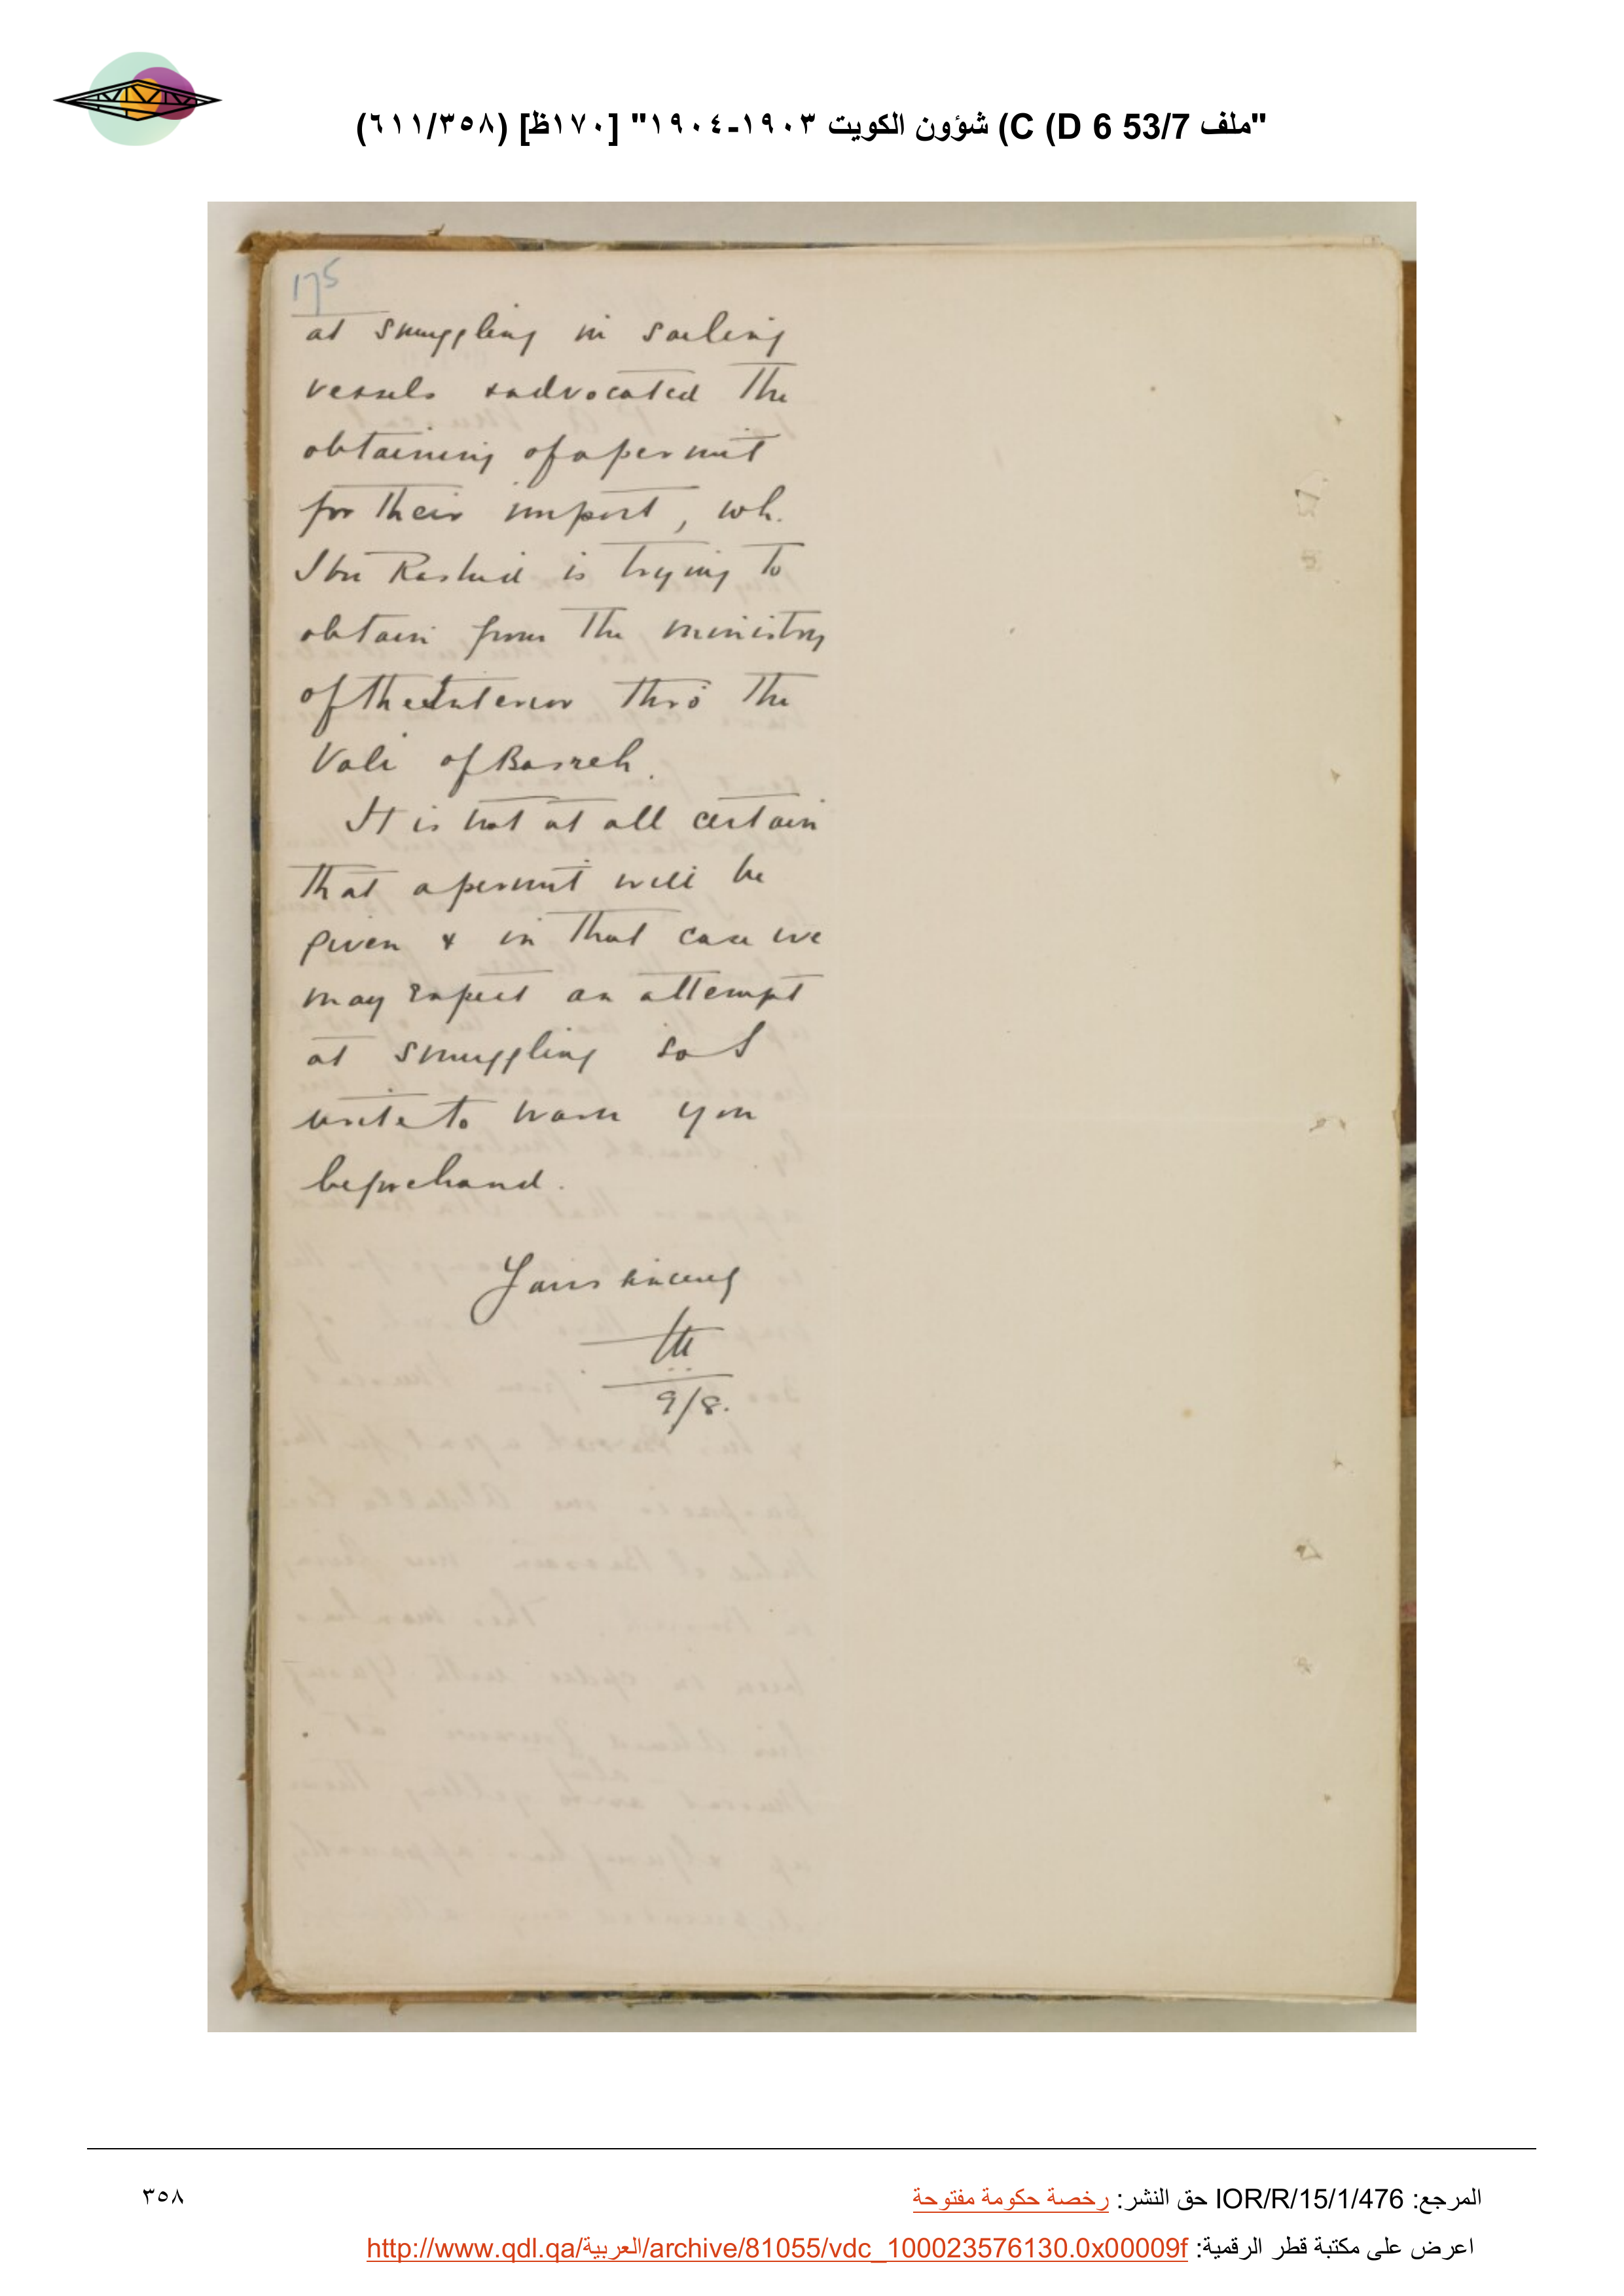 "ملف 53/7 C (D 6) شؤون الكويت ١٩٠٣-١٩٠٤" [١٧٠ظ] (٦١١/٣٥٨)
175
at smuggling in sailing
vessels & advocated the
obtaining of a permit
for their import, wh.
Ibn Rashid is trying to
obtain from the ministry
of the Interior thro' the
Vali of Basrah.
It is not at all certain
that a permit will be
given & in that case we
may expect an attempt
at smuggling so I
write to warn you
beforehand.
Yours sincerely
9/8.
المرجع: IOR/R/15/1/476 حق النشر: رخصة حكومة مفتوحة
٣٥٨
اعرض على مكتبة قطر الرقمية: http://www.qdl.qa/العربية/archive/81055/vdc_100023576130.0x00009f